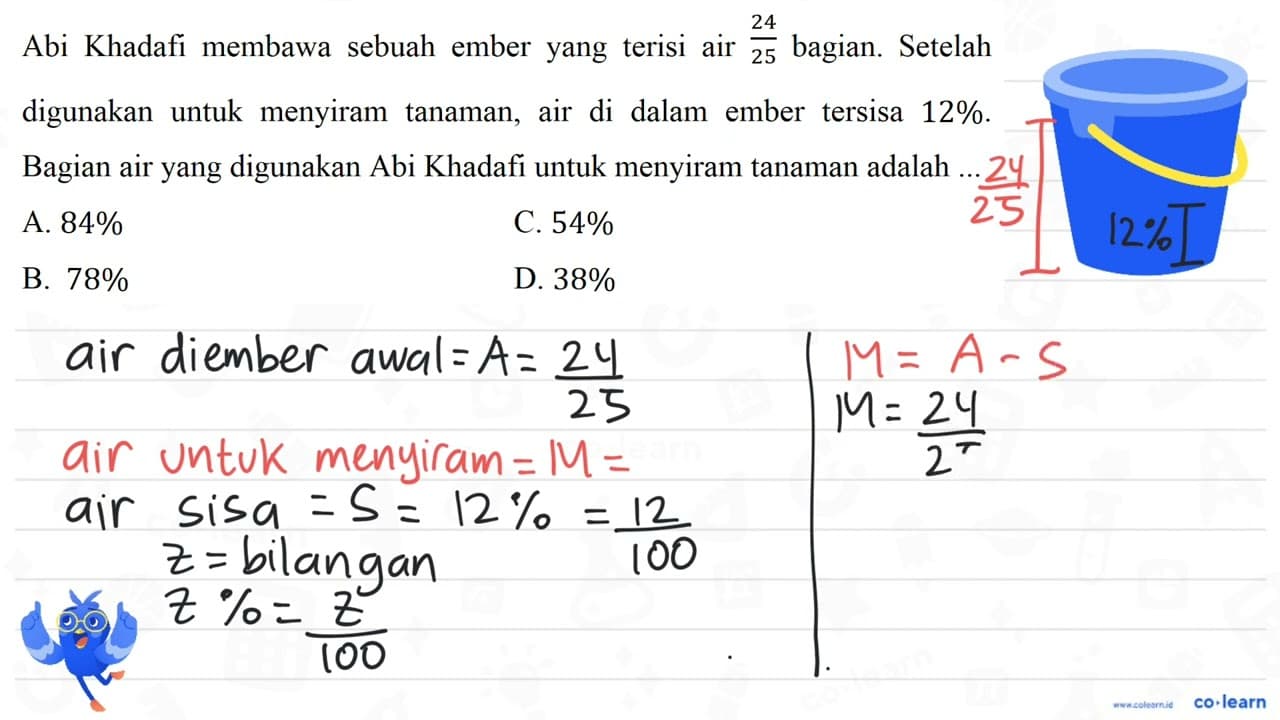 Abi Khadafi membawa sebuah ember yang terisi air 24/25 bagian. Setelah
digunakan untuk menyiram tanaman, air di dalam ember tersisa 12%.
Bagian air yang digunakan Abi Khadafi untuk menyiram tanaman adalah ...
A. 84%
C. 54%
B. 78%
D. 38%
24/25
12%
air diember awal = A = 24/25
air untuk menyiram = M =
air sisa = S = 12% = 12/100
z = bilangan
z % = z/100
M = A - S
M = 24/25
www.colearn.id
co·learn